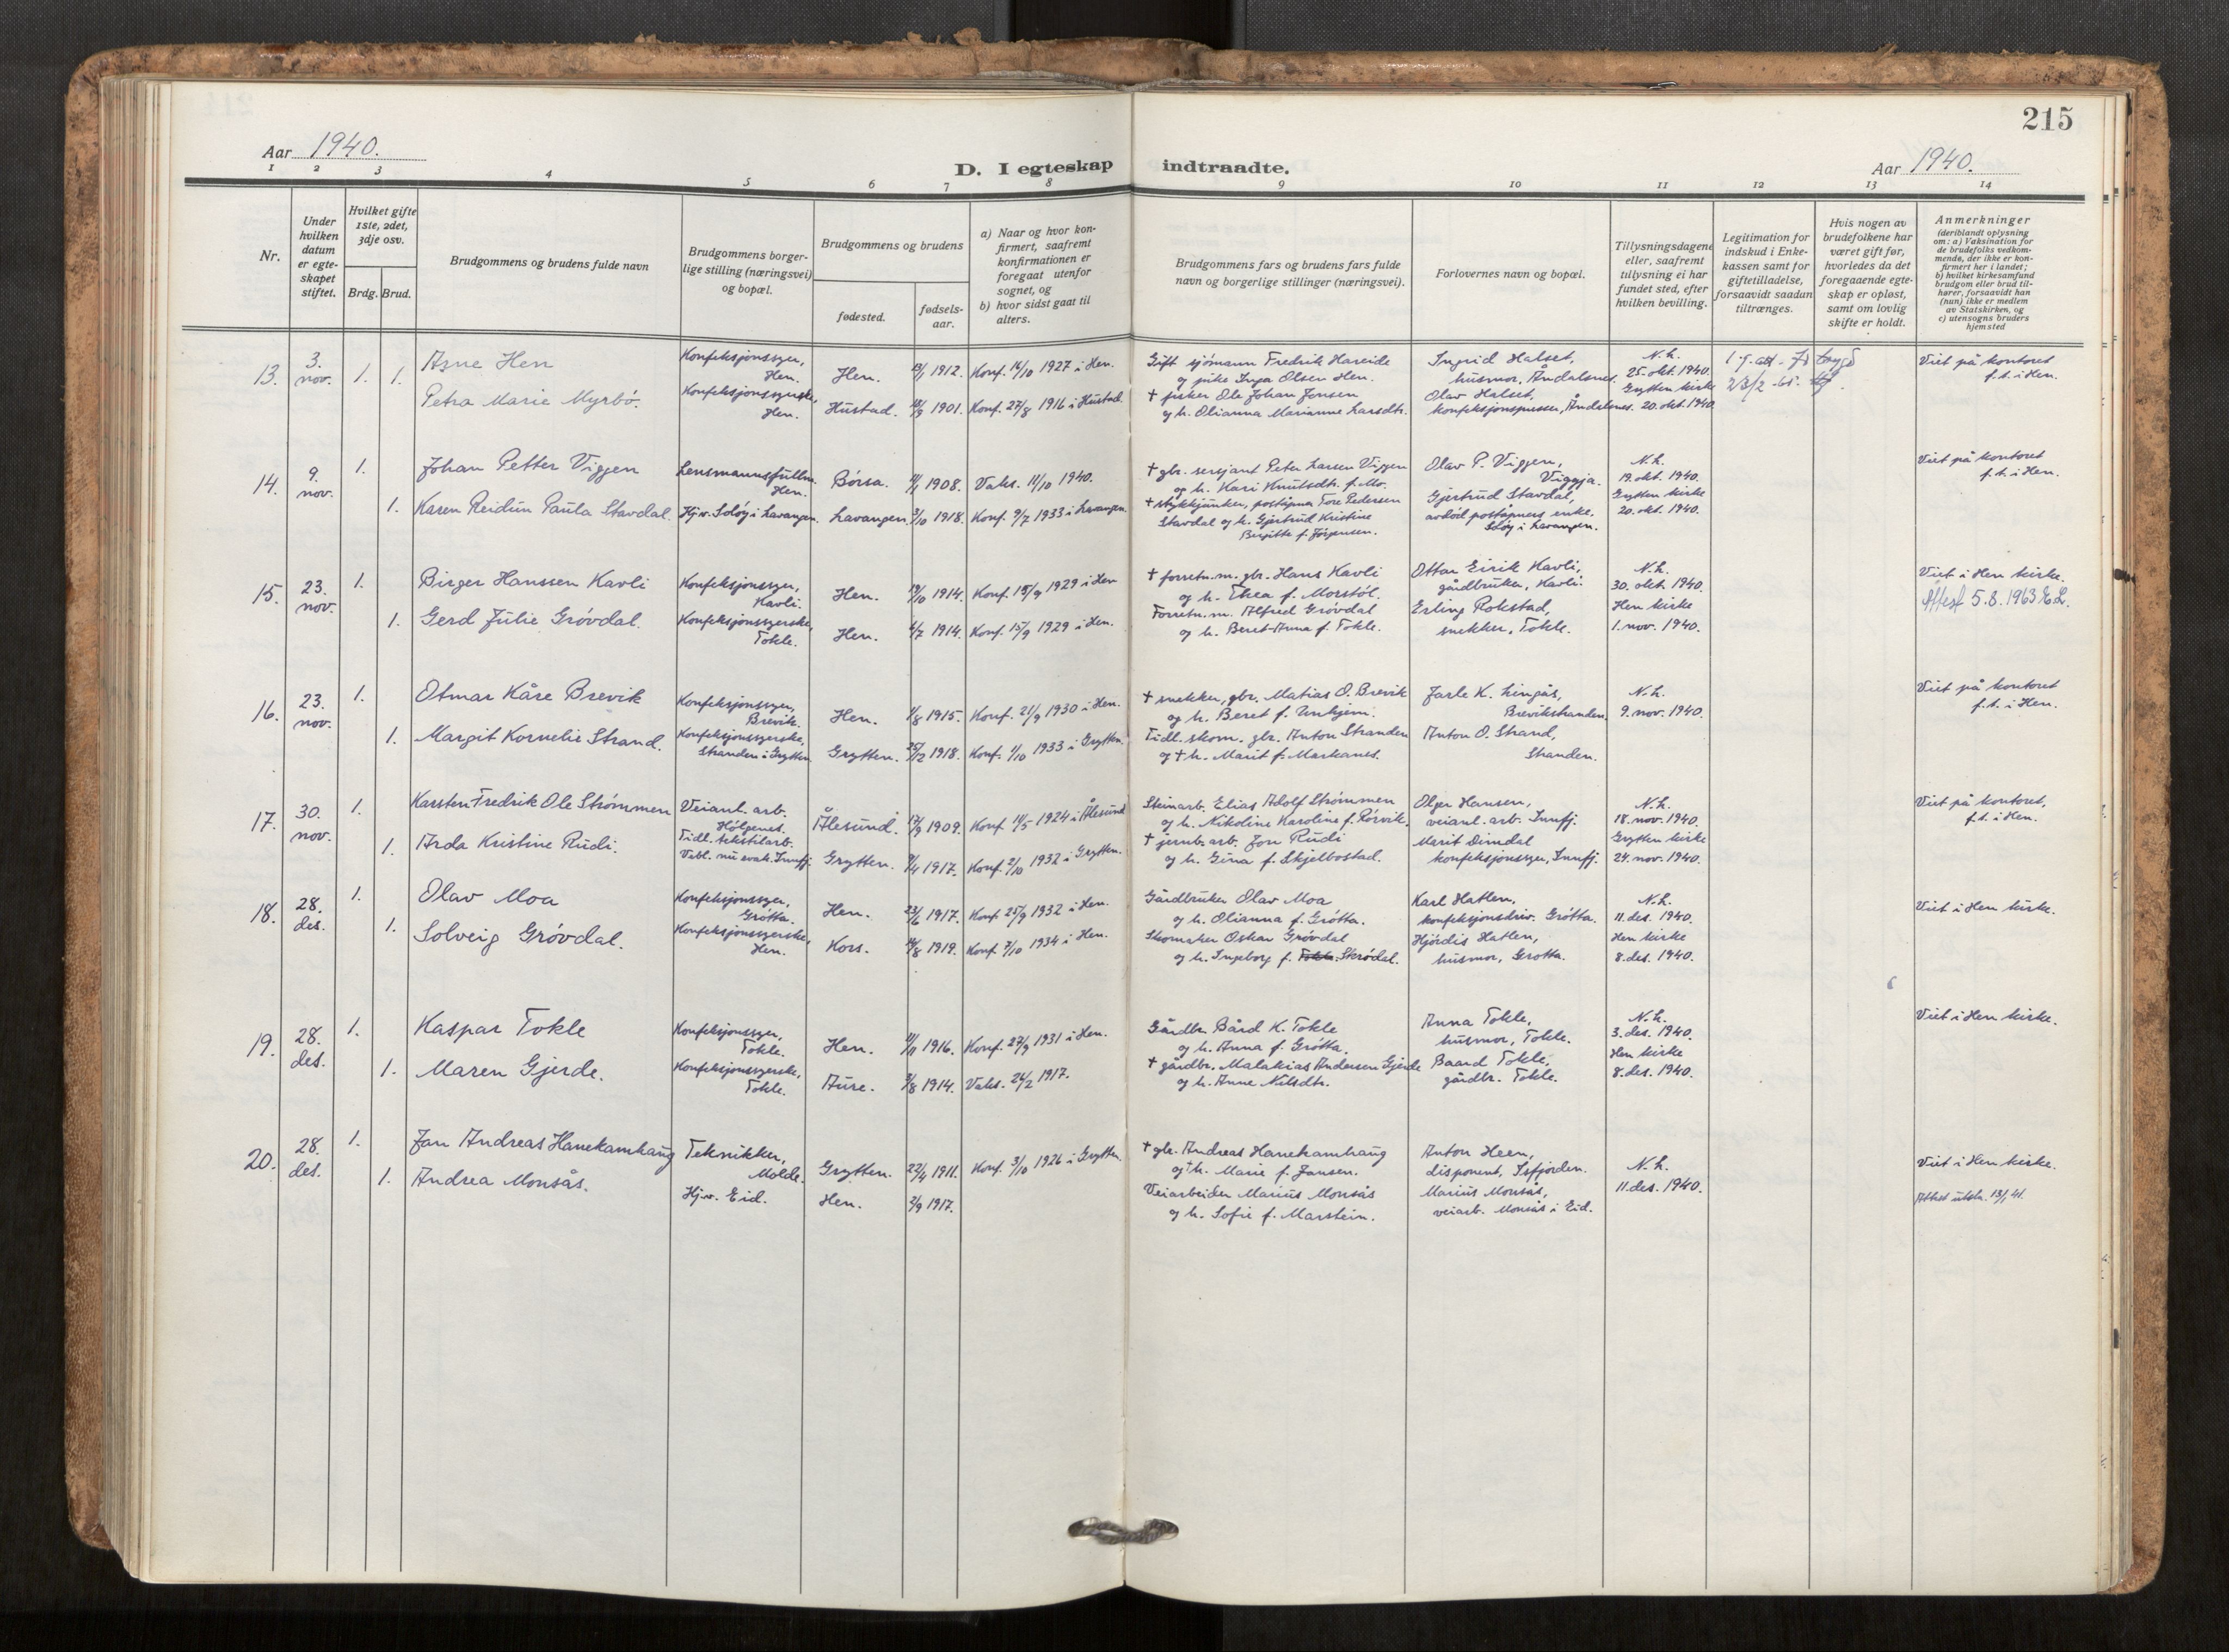 215
Aar 1940.
D. I egteskap indtraadte.
Aar 1940.
1 2 3 4 5 6 7 8 9 10 11 12 13 14
Nr.
Under hvilken datum er egte-skapet stiftet.
Hvilket gifte 1ste, 2det, 3dje osv.
Brdg. Brud.
Brudgommens og brudens fulde navn
Brudgommens borger-lige stilling (næringsvei) og bopæl.
Brudgommens og brudens
fødested.
fødsels-aar.
a) Naar og hvor kon-firmert, saafremt konfirmationen er foregaat utenfor sognet, og
b) hvor sidst gaat til alters.
Brudgommens fars og brudens fars fulde navn og borgerlige stillinger (næringsvei).
Forlovernes navn og bopæl.
Tillysningsdagene eller, saafremt tillysning ei har fundet sted, efter hvilken bevilling.
Legitimation for indskud i Enke-kassen samt for giftetilladelse, forsaavidt saadan tiltrænges.
Hvis nogen av brudefolkene har været gift før, hvorledes da det foregaaende egte-skap er opløst, samt om lovlig skifte er holdt.
Anmerkninger
(deriblandt oplysning om: a) Vaksination for de brudefolks vedkom-mende, der ikke er kon-firmert her i landet;
b) hvilket kirkesamfund brudgom eller brud til-hører, forsaavidt han (hun) ikke er medlem av Statskirken, og
c) utensogns bruders hjemsted
13. 3. nov. 1. 1.
Arne Hen
Konfeksjonssyer, Hen.
Hen. 1912. Konf. 16/10 1927 i Hen.
Gift sjömann Fredrik Hareide
og pike Inga Olsen Hen.
Ingrid Halset,
husmor, Åndalsnes.
N.h.
25. okt. 1940.
Viet på kontoret
f.t. i Hen.
Petra Marie Myrbö.
Konfeksjonssyerske, Hen.
Hustad. 1901. Konf. 27/8 1916 i Hustad.
† fisker Ole Johan Jensen
og h. Olianna Marianne Larsdtr.
Olav Halset,
konfeksjonspresser, Åndalsnes.
Grytten kirke
20. okt. 1940.
23/2 -65.
14. 9. nov. 1.
Johan Petter Viggen
Lensmannsfullm. Hen.
Börsa. 1908. Vaks. 11/10 1940.
† gbr. sersjant Peter Larsen Viggen
og h. Kari Knutsdtr. f. Mo.
Olav P. Viggen,
Viggja.
N.h.
19. okt. 1940.
Viet på kontoret
f.t. i Hen.
1. Karen Reidun Paula Stavdal.
Hj.v. Solöy i Lavangen.
Lavangen. 3/10 1918. Konf. 9/7 1933 i Lavangen.
† stykkjunker, poståpner Tore Pedersen
Stavdal og h. Gjertrud Kristine
Birgitte f. Jörgensen.
Gjertrud Stavdal,
avdöd poståpners enke.
Slöy i Lavangen.
Grytten kirke
20. okt. 1940.
15. 23. nov. 1.
Birger Hanssen Kavli
Konfeksjonssyer, Kavli.
Hen. 19/10 1914. Konf. 15/9 1929 i Hen
† forretn.m. gbr. Hans Kavli
og h. Thea f. Morstöl.
Ottar Eirik Kavli,
gårdbruker, Kavli.
N.h.
30. okt. 1940.
Viet i Hen kirke.
Attest 5.8.1963 E.L.
1. Gerd Julie Grövdal.
Konfeksjonssyerske, Tokle.
Hen. 4/7 1914. Konf. 15/9 1929 i Hen.
Forretn.m. Alfred Grövdal
og h. Beret-Anna f. Tokle.
Erling Rokstad,
snekker, Tokle.
Hen kirke
1. nov. 1940.
16. 23. nov. 1.
Otmar Kåre Brevik
Konfeksjonssyer, Brevik.
Hen. 1/8 1915. Konf. 21/9 1930 i Hen.
† snekker, gbr. Matias O. Brevik
og h. Beret f. Unhjem.
Jarle K. Lingås,
Brevikstranden.
N.h.
9. nov. 1940.
Viet på kontoret
f.t. i Hen.
1. Margit Kornelie Strand.
Konfeksjonssyerske, Stranden i Grytten
Grytten. 25/12 1918. Konf. 1/10 1933 i Grytten.
Tidl. skom. gbr. Anton Stranden
og † h. Marit f. Markanes.
Anton O. Strand,
Stranden.
17. 30. nov. 1.
Karsten Fredrik Ole Strömmen
Veianl. arb. Hölgenes.
Ålesund. 1909. Konf. 11/5 1924 i Ålesund
Steinarb. Elias Adolf Strömmen
og h. Nikoline Karoline f. Rörvik.
Olger Hansen,
veianl. arb. Innfj.
N.h.
18. nov. 1940.
Viet på kontoret,
f.t. i Hen.
1. Arda Kristine Rudi.
Tidl. tekstilarb. Vebl. nu evak. Innfj.
Grytten. 1917. Konf. 2/10 1932 i Grytten.
† jernb. arb. Jon Rudi
og h. Gina f. Skjelbostad.
Marit Dirndal
konfeksjonssyer, Innfj.
Grytten kirke
24. nov. 1940.
18. 28. des. 1.
Olav Moa
Konfeksjonssyer, Grötta.
Hen. 23/6 1917. Konf. 25/9 1932 i Hen.
Gårdbruker Olav Moa
og h. Olianna f. Grötta.
Karl Hatlen,
konfeksjonsdriv. Grötta.
N.h.
11. des. 1940.
Viet i Hen kirke.
1. Solveig Grövdal.
Konfeksjonssyerske, Hen.
Kors. 14/8 1919. Konf. 7/10 1934 i Hen.
Skomaker Oskar Grövdal
og h. Ingeborg f. Tokle. Skrödal.
Hjördis Hatlen,
husmor, Grotta.
Hen kirke
8. des. 1940.
19. 28. des. 1.
Kaspar Tokle
Konfeksjonssyer, Tokle.
Hen. 11/11 1916. Konf. 27/9 1931 i Hen.
Gårdbr. Bård K. Tokle
og h. Anna f. Grötta.
Anna Tokle,
husmor, Tokle.
N.h.
3. des. 1940.
Viet i Hen kirke.
1. Maren Gjerde.
Konfeksjonssyerske, Tokle.
Aure. 3/8 1914. Vaks. 24/2 1917.
† gårdbr. Malakias Andersen Gjerde
og h. Anne Nilsdtr.
Baard Tokle,
gårdbr. Tokle.
Hen kirke
8. des. 1940.
20. 28. des. 1.
Jan Andreas Hanekamhaug
Teknikker, Molde.
Grytten. 22/4 1911. Konf. 3/10 1926 i Grytten.
† gbr. Andreas Hanekamhaug
og † h. Marie f. Jansen.
Anton Heen,
disponent, Isfjorden.
N.h.
11. des. 1940.
Viet i Hen kirke.
Attest utstr. 13/1 41.
1. Andrea Monsås.
Hj.v. Eid.
Hen. 2/9 1917.
Veiarbeider Marius Monsås
og h. Sofie f. Marstein.
Marius Monsås,
veiarb. Monsås i Eid.